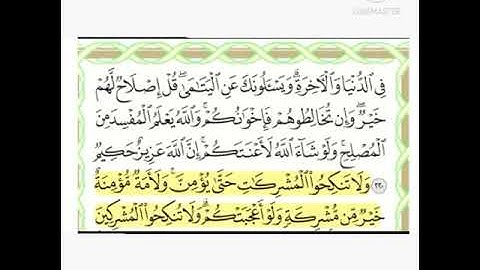 فِي ٱلدُّنْيَا وَٱلْأَخِرَةِ ۗ وَيَسْـَٔلُونَكَ عَنِ ٱلْيَتَٰمَىٰ ۖ قُلْ إِصْلَاحٌ لَّهُمْ
خَيْرٌ ۖ وَإِن تُخَالِطُوهُمْ فَإِخْوَٰنُكُمْ ۚ وَٱللَّهُ يَعْلَمُ ٱلْمُفْسِدَ مِنَ
ٱلْمُصْلِحِ ۚ وَلَوْ شَآءَ ٱللَّهُ لَأَعْنَتَكُمْ ۚ إِنَّ ٱللَّهَ عَزِيزٌ حَكِيمٌ
٢٢٠ وَلَا تَنكِحُوا۟ ٱلْمُشْرِكَٰتِ حَتَّىٰ يُؤْمِنَّ ۚ وَلَأَمَةٌ مُّؤْمِنَةٌ
خَيْرٌ مِّن مُّشْرِكَةٍ وَلَوْ أَعْجَبَتْكُمْ ۗ وَلَا تُنكِحُوا۟ ٱلْمُشْرِكِينَ